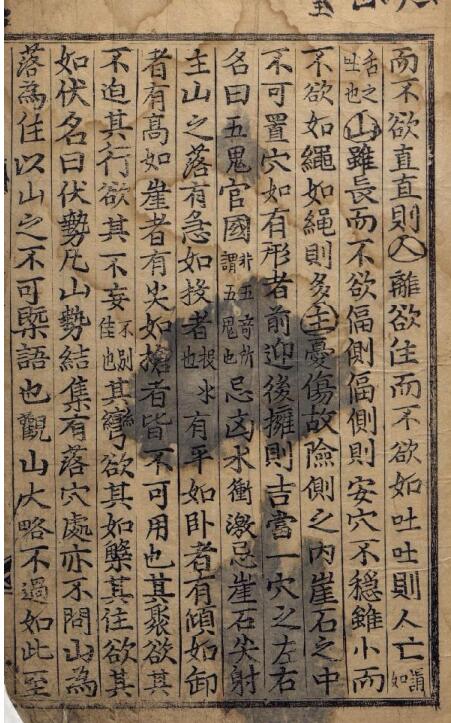 而不欲直直則人離欲住而不欲如吐吐則人亡謂如
舌之吐也山雖長而不欲偪側偪側則安穴不穩雖小而
不欲如繩如繩則多主憂傷故險側之內崖石之中
不可置穴如有形者前迎後擁則吉當一穴之左右
名曰五鬼官國非五音所謂五鬼也忌凶水衝激忌崖石尖射
主山之落有急如投者也有平如卧者有傾如卸
者有高如崖者有尖如搶者皆不可用也其聚欲其
不迫其行欲其不妄不別佳也其彎欲其如其住欲其
如伏名曰伏勢凡山勢結集有落穴處亦不問山為
落為住以山之不可槩語也觀山大略不過如此至